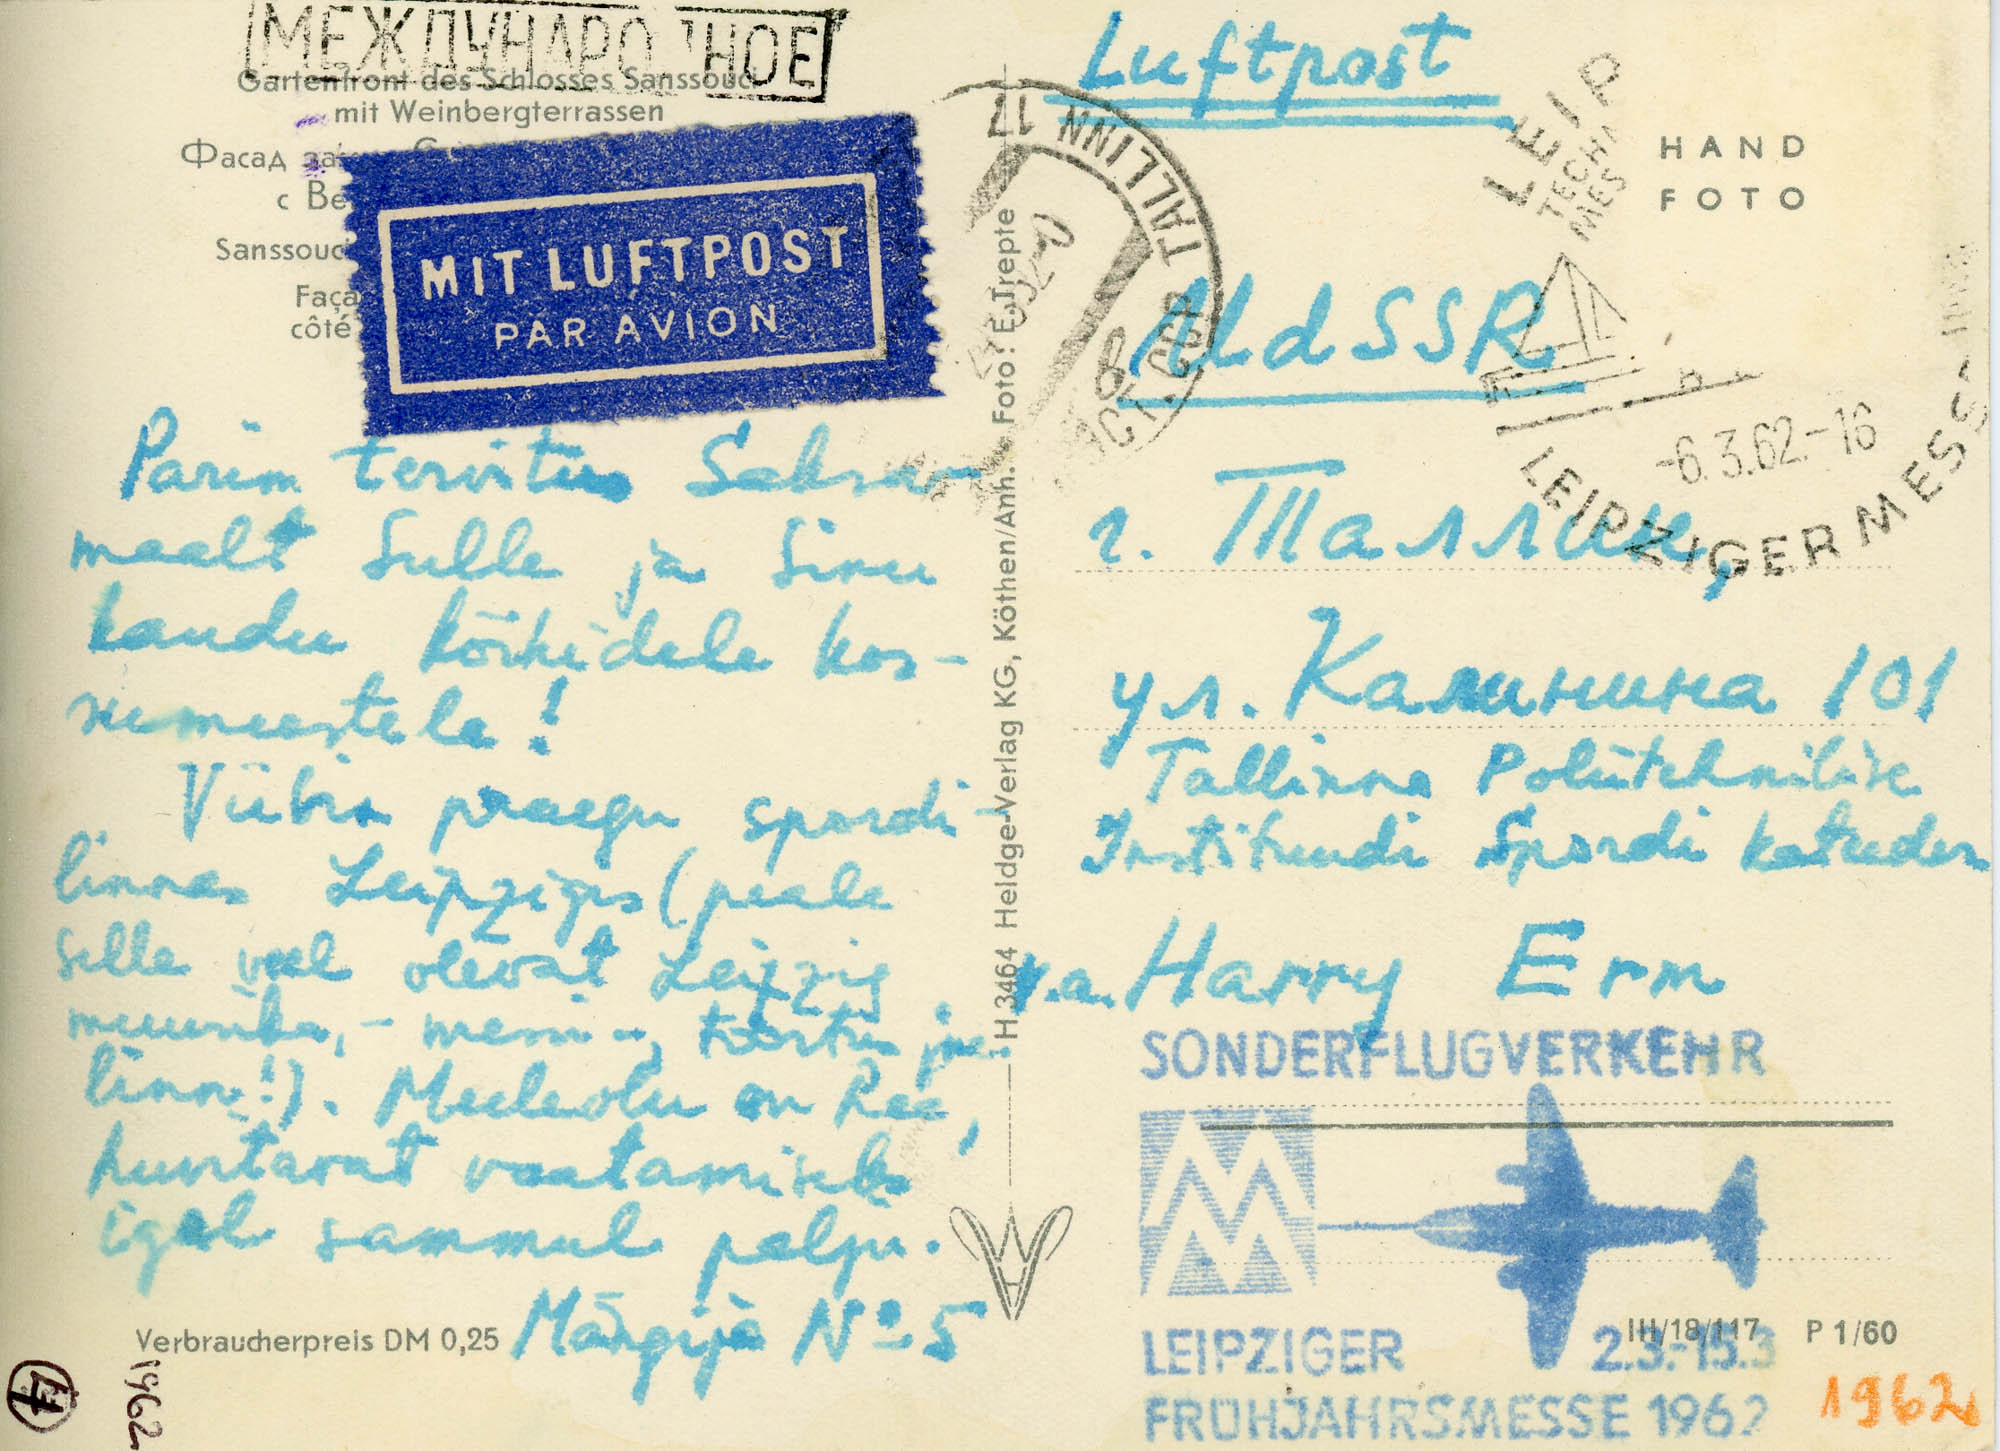 МЕЖДУНАРО НОЕ
Gartenfront des Schlosses Sanssouci
mit Weinbergterrassen
Фасад
с Ве
Sanssouc
Faça
côté
MIT LUFTPOST
PAR AVION
Parim tervitus Saksa-
maalt Sulle ja Sinu
kaudu kõikidele kos-
sumeestele!
Viibin praegu spordi-
linnas Leipzigis (peale
selle veel olevat Leipzig
muusika, - messi -,
linn!). Meeleolu on hea,
huvitavat vaatamiseks
igal sammul palju.
Mängija No 5
Verbraucherpreis DM 0,25
1962
H 3464 Heldge-Verlag KG, Köthen/Anh. Foto: E. Trepte
17 TALLINN
Luftpost
HAND
FOTO
LEIP
TECHN
MES
UdSSR
-6.3.62.-16
LEIPZIGER MESS
г. Таллин,
ул. Калинина 101
Tallinna Polütehnilise
Instituudi Spordi kateeder
Harry Erm
SONDERFLUGVERKEHR
MM
LEIPZIGER 2.3.-15.3
FRÜHJAHRSMESSE 1962
III/18/117 P 1/60
1962